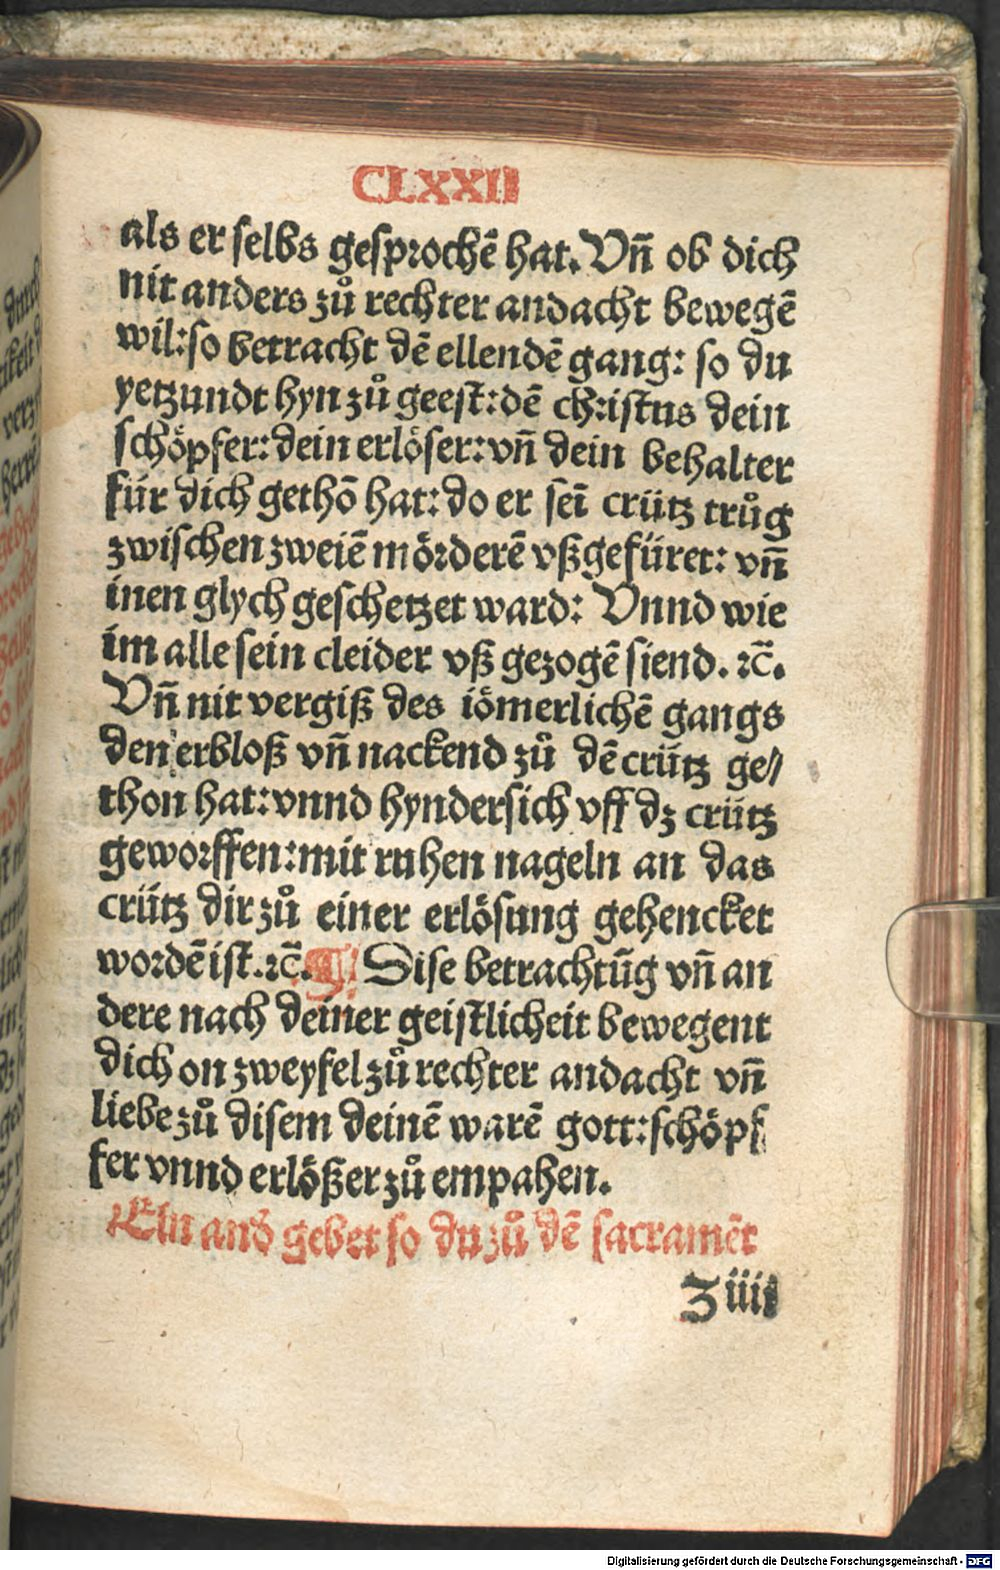 CLXXII
als er selbs gesprochē hat. Vñ ob dich
nit anders zů rechter andacht bewegē
wil: so betracht dē ellendē gang: so du
yetzundt hyn zů geest: dē christus dein
schöpfer: dein erlöser: vñ dein behalter
für dich gethō hat: do er seī crütz trůg
zwischen zweiē mörderē vßgefüret: vñ
inen glych geschetzet ward: Vnnd wie
im alle sein cleider vß gezogē siend. ꝛc̄.
Vñ nit vergiß des iömerlichē gangs
den erbloß vñ nackend zů dē crütz ge⸗
thon hat: vnnd hyndersich vff dz crütz
geworffen: mit ruhen nageln an das
crütz dir zů einer erlösung gehencket
wordē ist. ꝛc̄. ¶ Dise betrachtūg vñ an
dere nach deiner geistlicheit bewegent
dich on zweyfel zů rechter andacht vñ
liebe zů disem deinē warē gott: schöpf
fer vnnd erlößer zů empahen.
Ein and gebet so du zů dē sacramēt
Z iiii
Digitalisierung gefördert durch die Deutsche Forschungsgemeinschaft - DFG